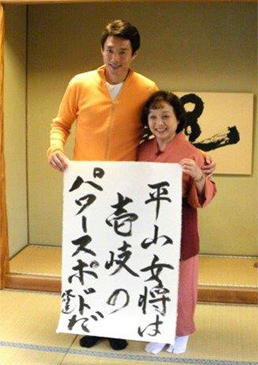 平山女将は
壱岐の
パワースポットだ
修造